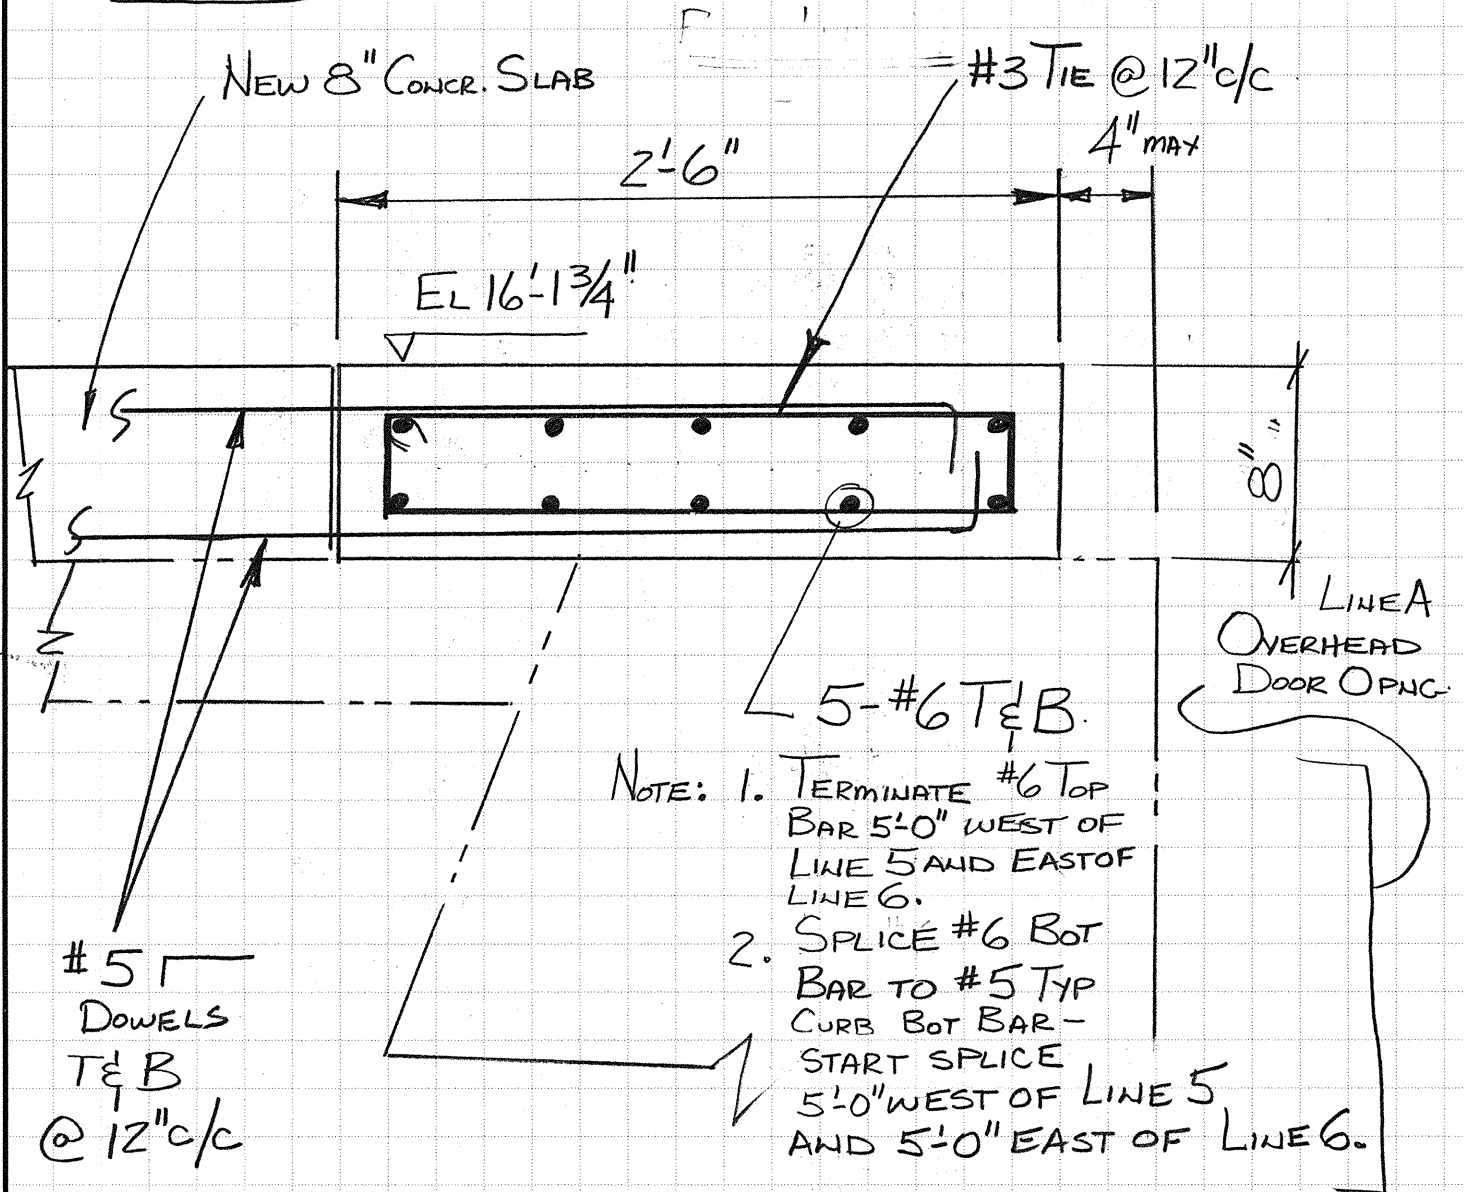 NEW 8" CONCR. SLAB
#3 TIE @ 12" c/c
4" MAX
2'-6"
EL 16'-1 3/4"
8"
LINE A
OVERHEAD
DOOR OPNG.
5-#6 T & B.
NOTE: 1. TERMINATE #6 TOP
BAR 5'-0" WEST OF
LINE 5 AND EAST OF
LINE 6.
2. SPLICE #6 BOT
BAR TO #5 TYP
CURB BOT BAR-
START SPLICE
5'-0" WEST OF LINE 5
AND 5'-0" EAST OF LINE 6.
#5
DOWELS
T & B
@ 12" c/c